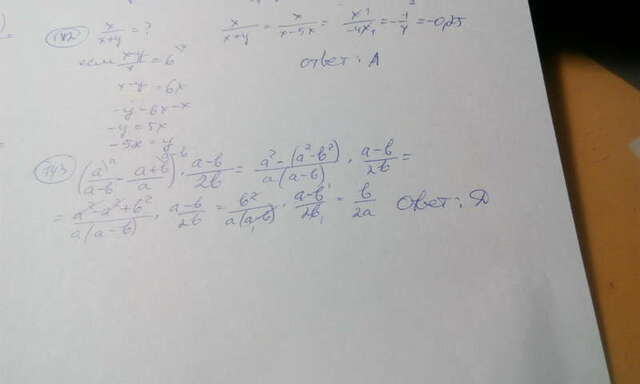 142 x/(x+y) = ? x/(x+y) = x/(x-5x) = x/(-4x) = -1/4 = -0,25
если (x-y)/x = 6 ответ: А
x-y = 6x
-y = 6x-x
-y = 5x
-5x = y
143 (a/(a-b) - (a+b)/a) · (a-b)/2b = (a²-(a²-b²))/(a(a-b)) · (a-b)/2b =
= (a²-a²+b²)/(a(a-b)) · (a-b)/2b = b²/(a(a-b)) · (a-b)/2b = b/2a Ответ: Д